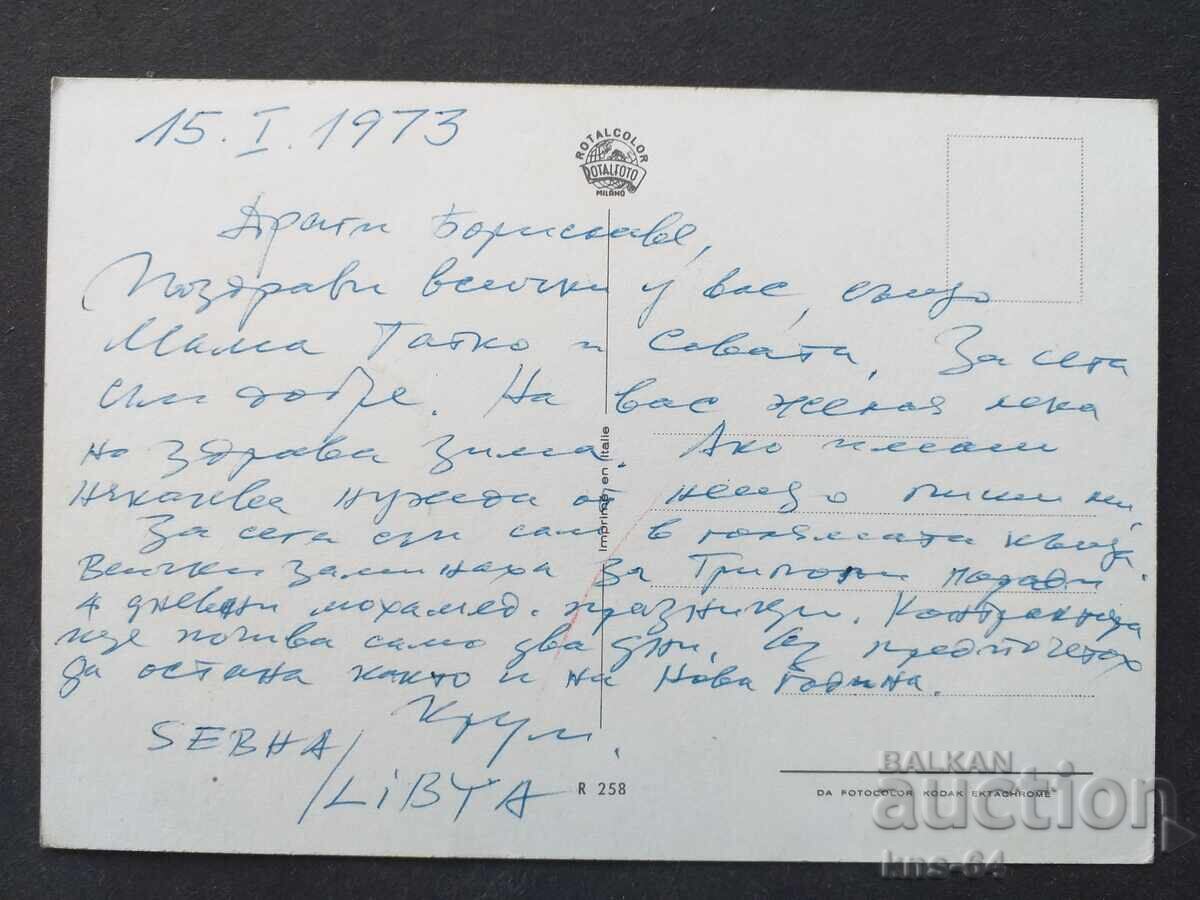 15.I.1973
ROTALCOLOR
ROTALFOTO
MILANO
Драги Бориславе,
Поздрави всички у вас, също
Мама Татко и Савата. За сега
съм добре. На вас желая лека
но здрава зима. Ако имаш
някаква нужда от нещо пиши ми,
За сега съм сам в голямата къща.
Всички заминаха за Триполи поради
4 дневни мохамед. празници.
ще почива само два дни. Аз предпочетох
да остана както и на Нова Година.
Крум.
SEBHA/
/LIBYA
Imprimé en Italie
R 258
DA FOTOCOLOR KODAK EKTACHROME
BALKAN
auction
kns-64